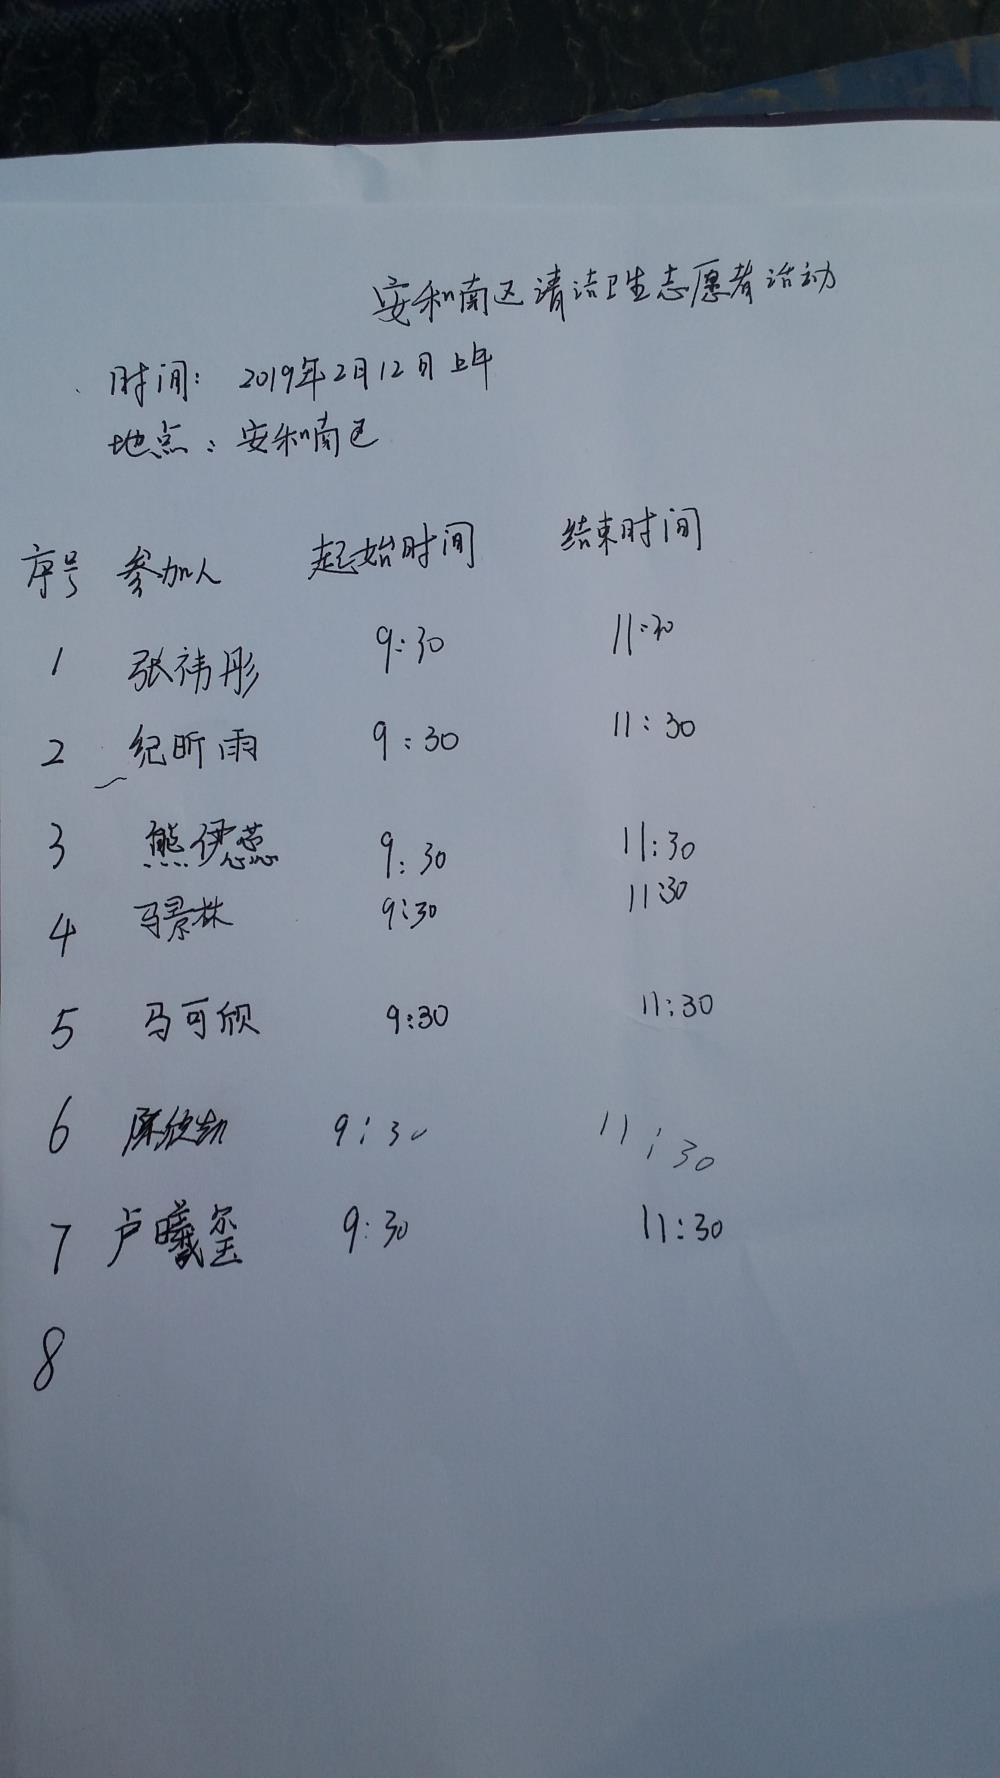 安和南区清洁卫生志愿者活动
时间: 2019年2月12日上午
地点: 安和南区
序号 参加人 起始时间 结束时间
1 张祎彤 9:30 11:30
2 纪昕雨 9:30 11:30
3 熊伊蕊 9:30 11:30
4 马景株 9:30 11:30
5 马可欣 9:30 11:30
6 陈欣凯 9:30 11:30
7 卢曦玺 9:30 11:30
8